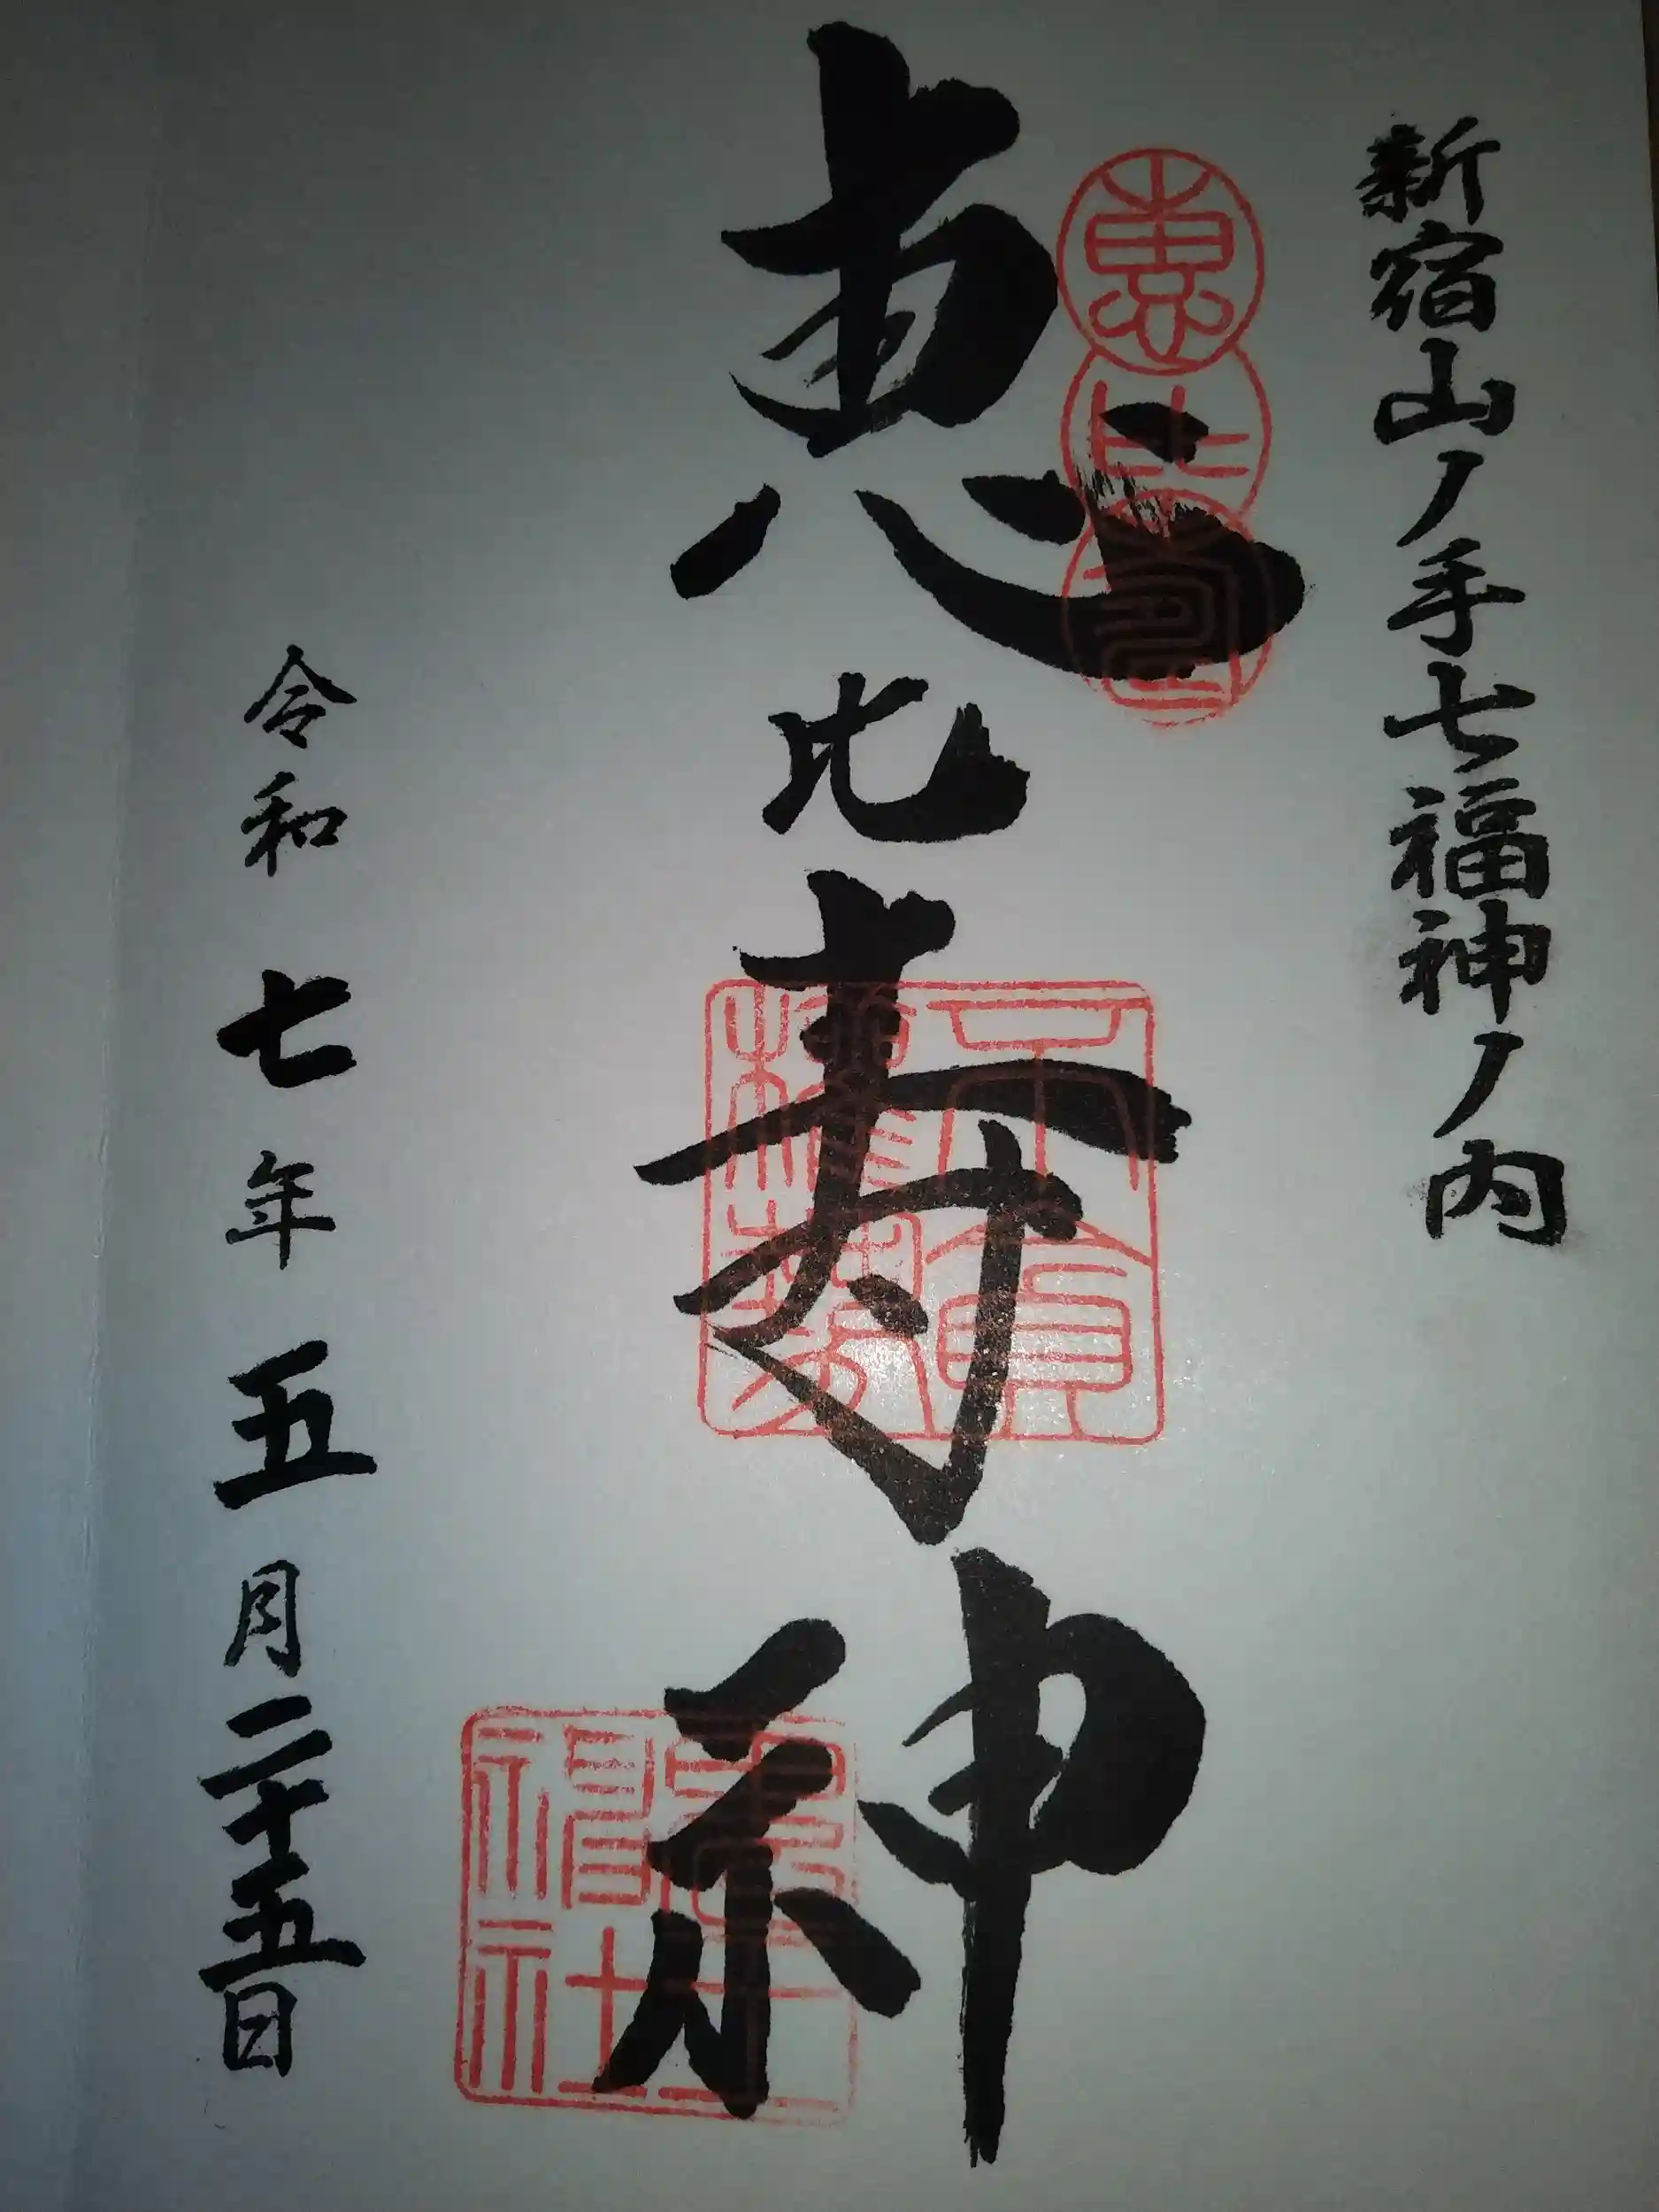 新宿山ノ手七福神ノ内
恵比寿神
恵比寿
令和七年五月二十五日